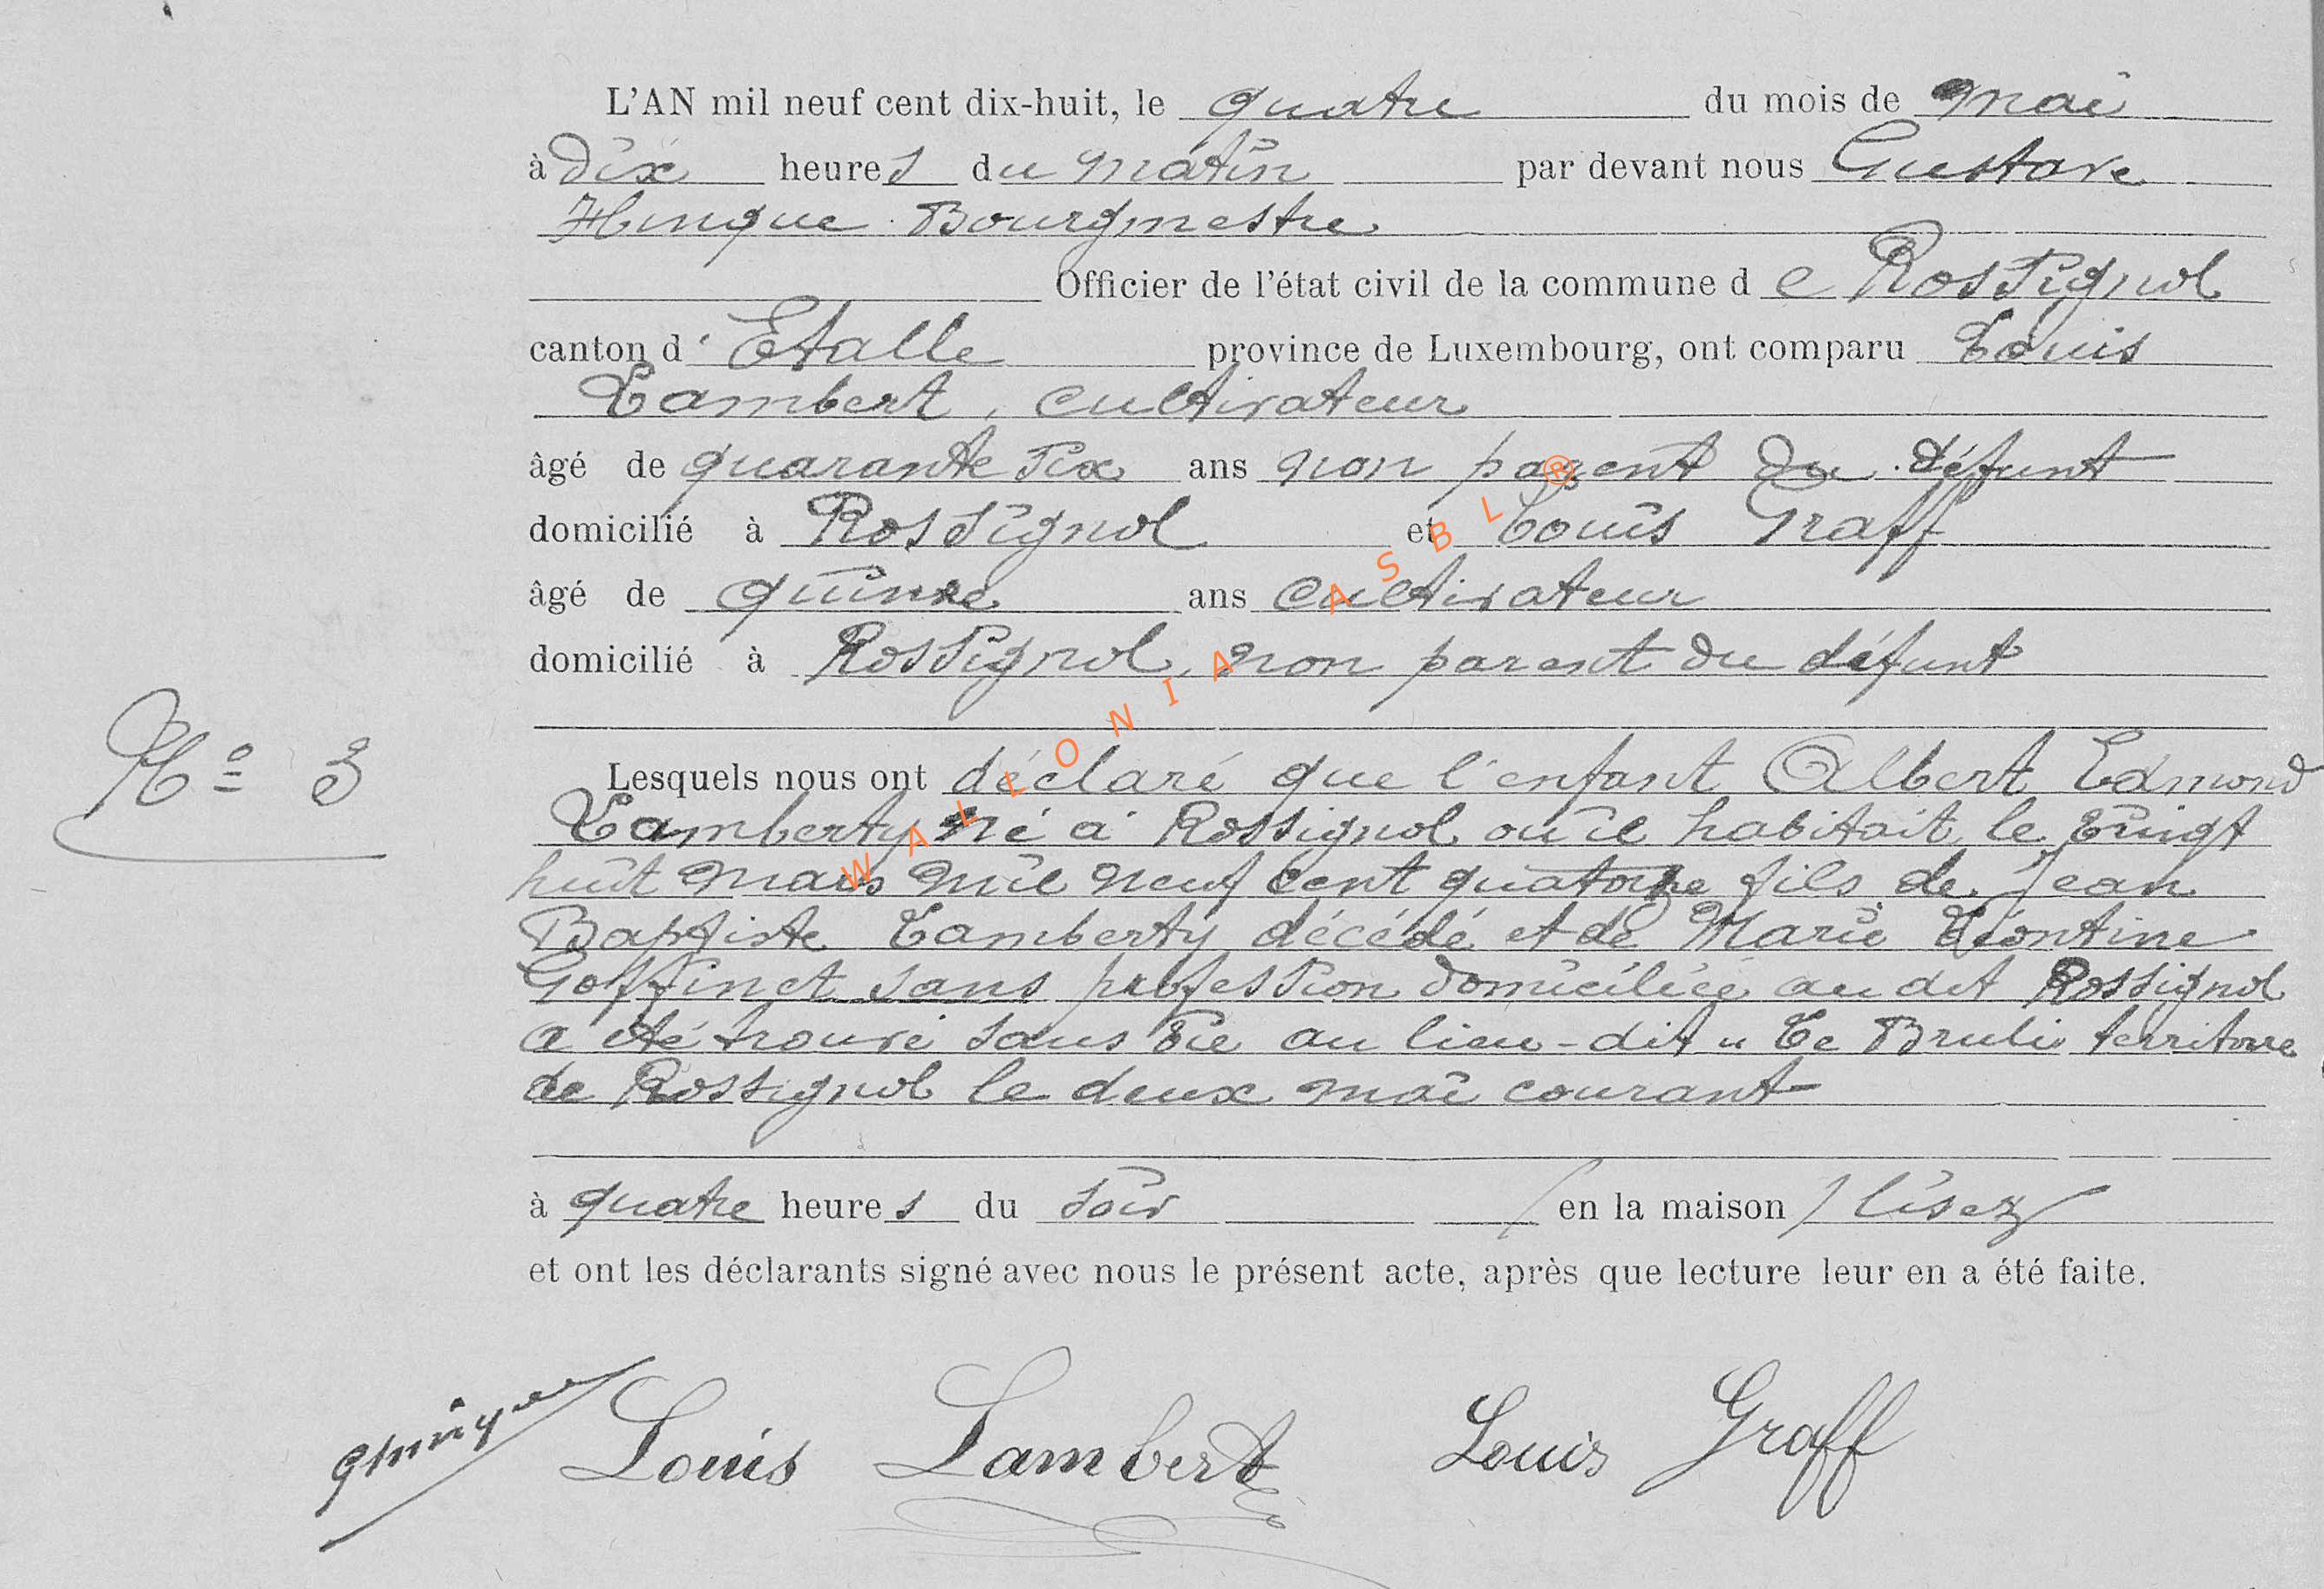 L'AN mil neuf cent dix-huit, le quatre du mois de mai
à dix heures du matin par devant nous Gustave
Hinque Bourgmestre
Officier de l'état civil de la commune de Rossignol
canton d'Etalle province de Luxembourg, ont comparu Louis
Lambert, cultivateur
âgé de quarante six ans non parent du défunt
domicilié à Rossignol et Louis Graff
âgé de quinze ans cultivateur
domicilié à Rossignol, non parent du défunt
N° 3
Lesquels nous ont déclaré que l'enfant Albert Edmond
Lamberty né à Rossignol où il habitait, le vingt
huit mars mil neuf cent quatorze fils de Jean
Baptiste Lamberty décédé et de Marie Léontine
Goffinet sans profession domiciliée au dit Rossignol
a été trouvé sans vie au lieu-dit " Le Brulé territoire
de Rossignol le deux mai courant
à quatre heures du soir / en la maison / lisez
et ont les déclarants signé avec nous le présent acte, après que lecture leur en a été faite.
Louis Lambert Louis Graff
WALLONIA ASBL ®